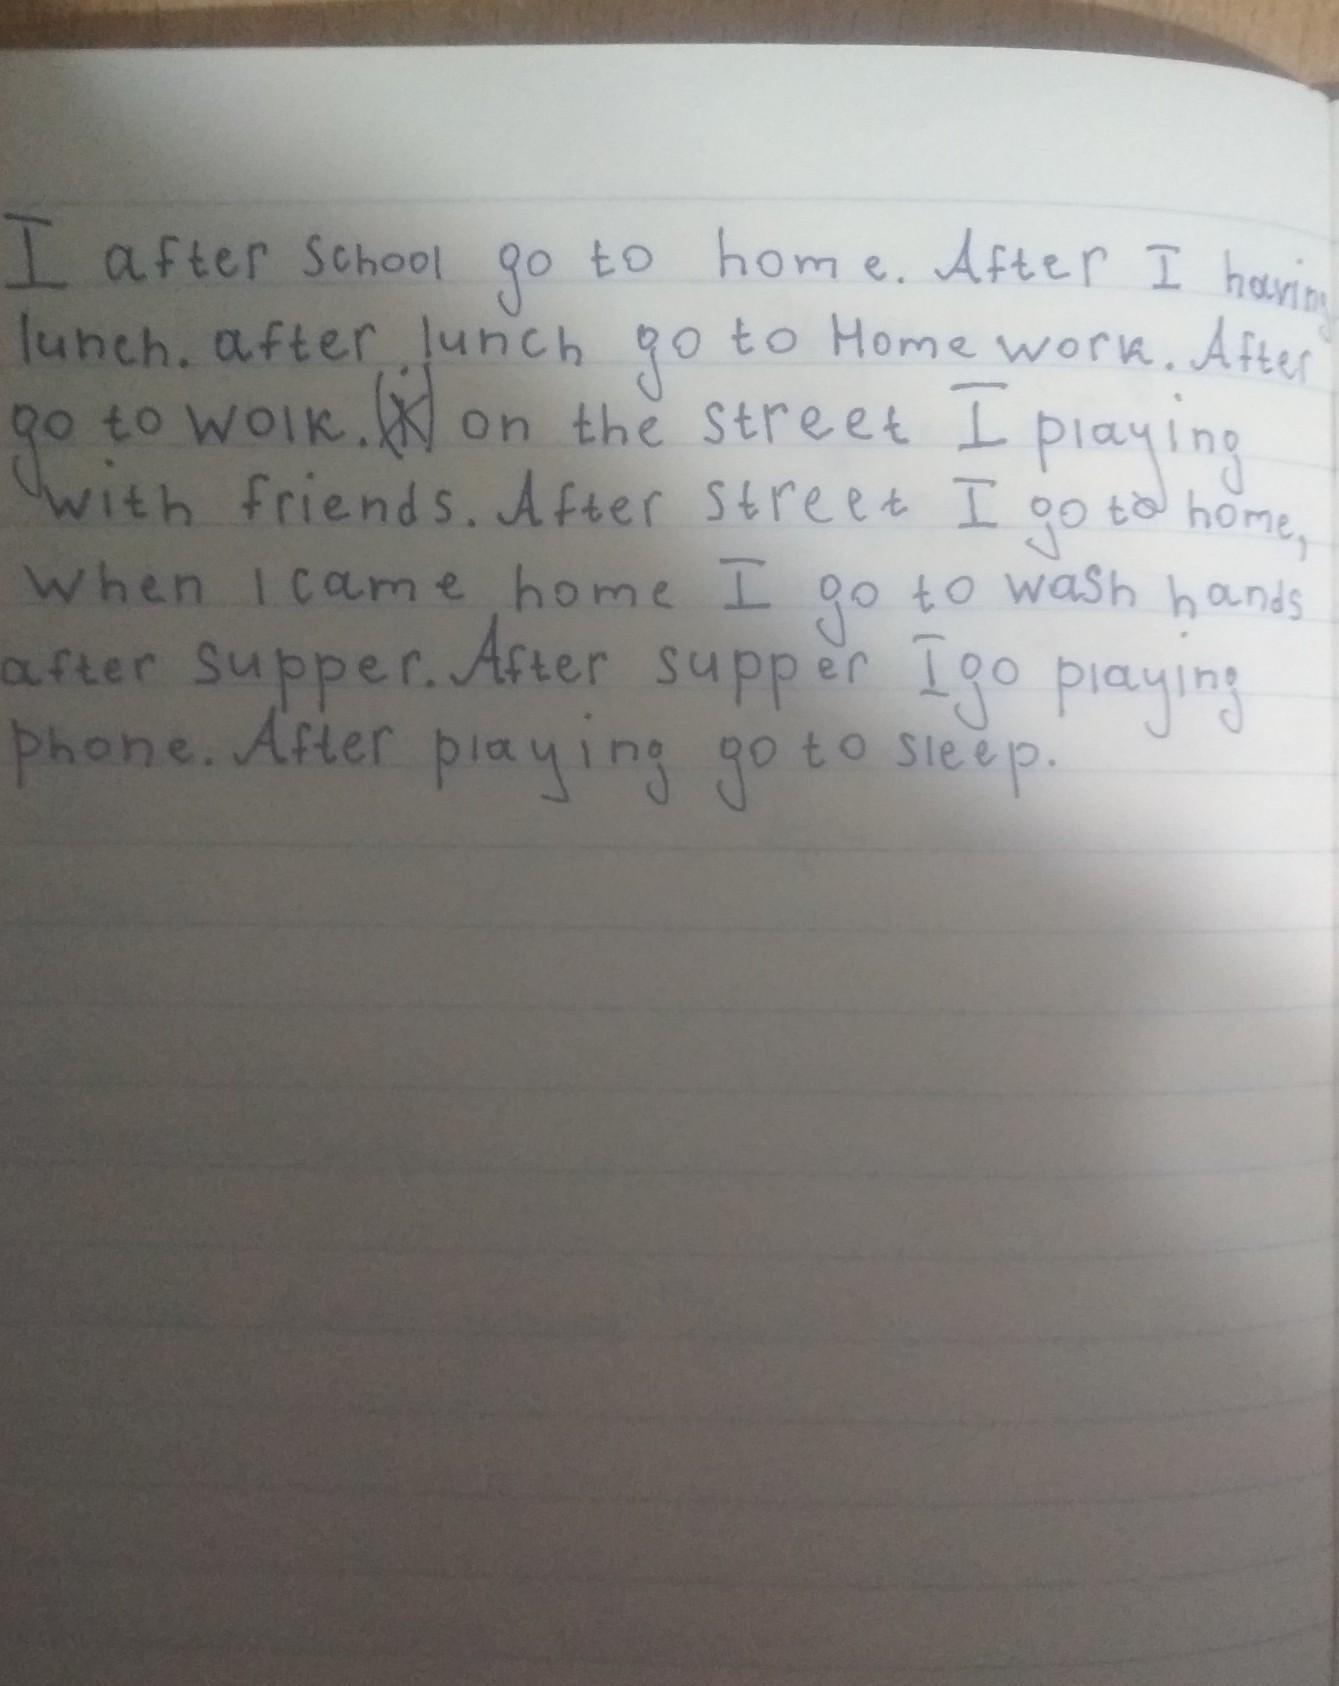 I after school go to home. After I having
lunch. after lunch go to Home work. After
go to wolk. on the street I playing
with friends. After street I go to home,
when I came home I go to wash hands
after supper. After supper I go playing
phone. After playing go to sleep.